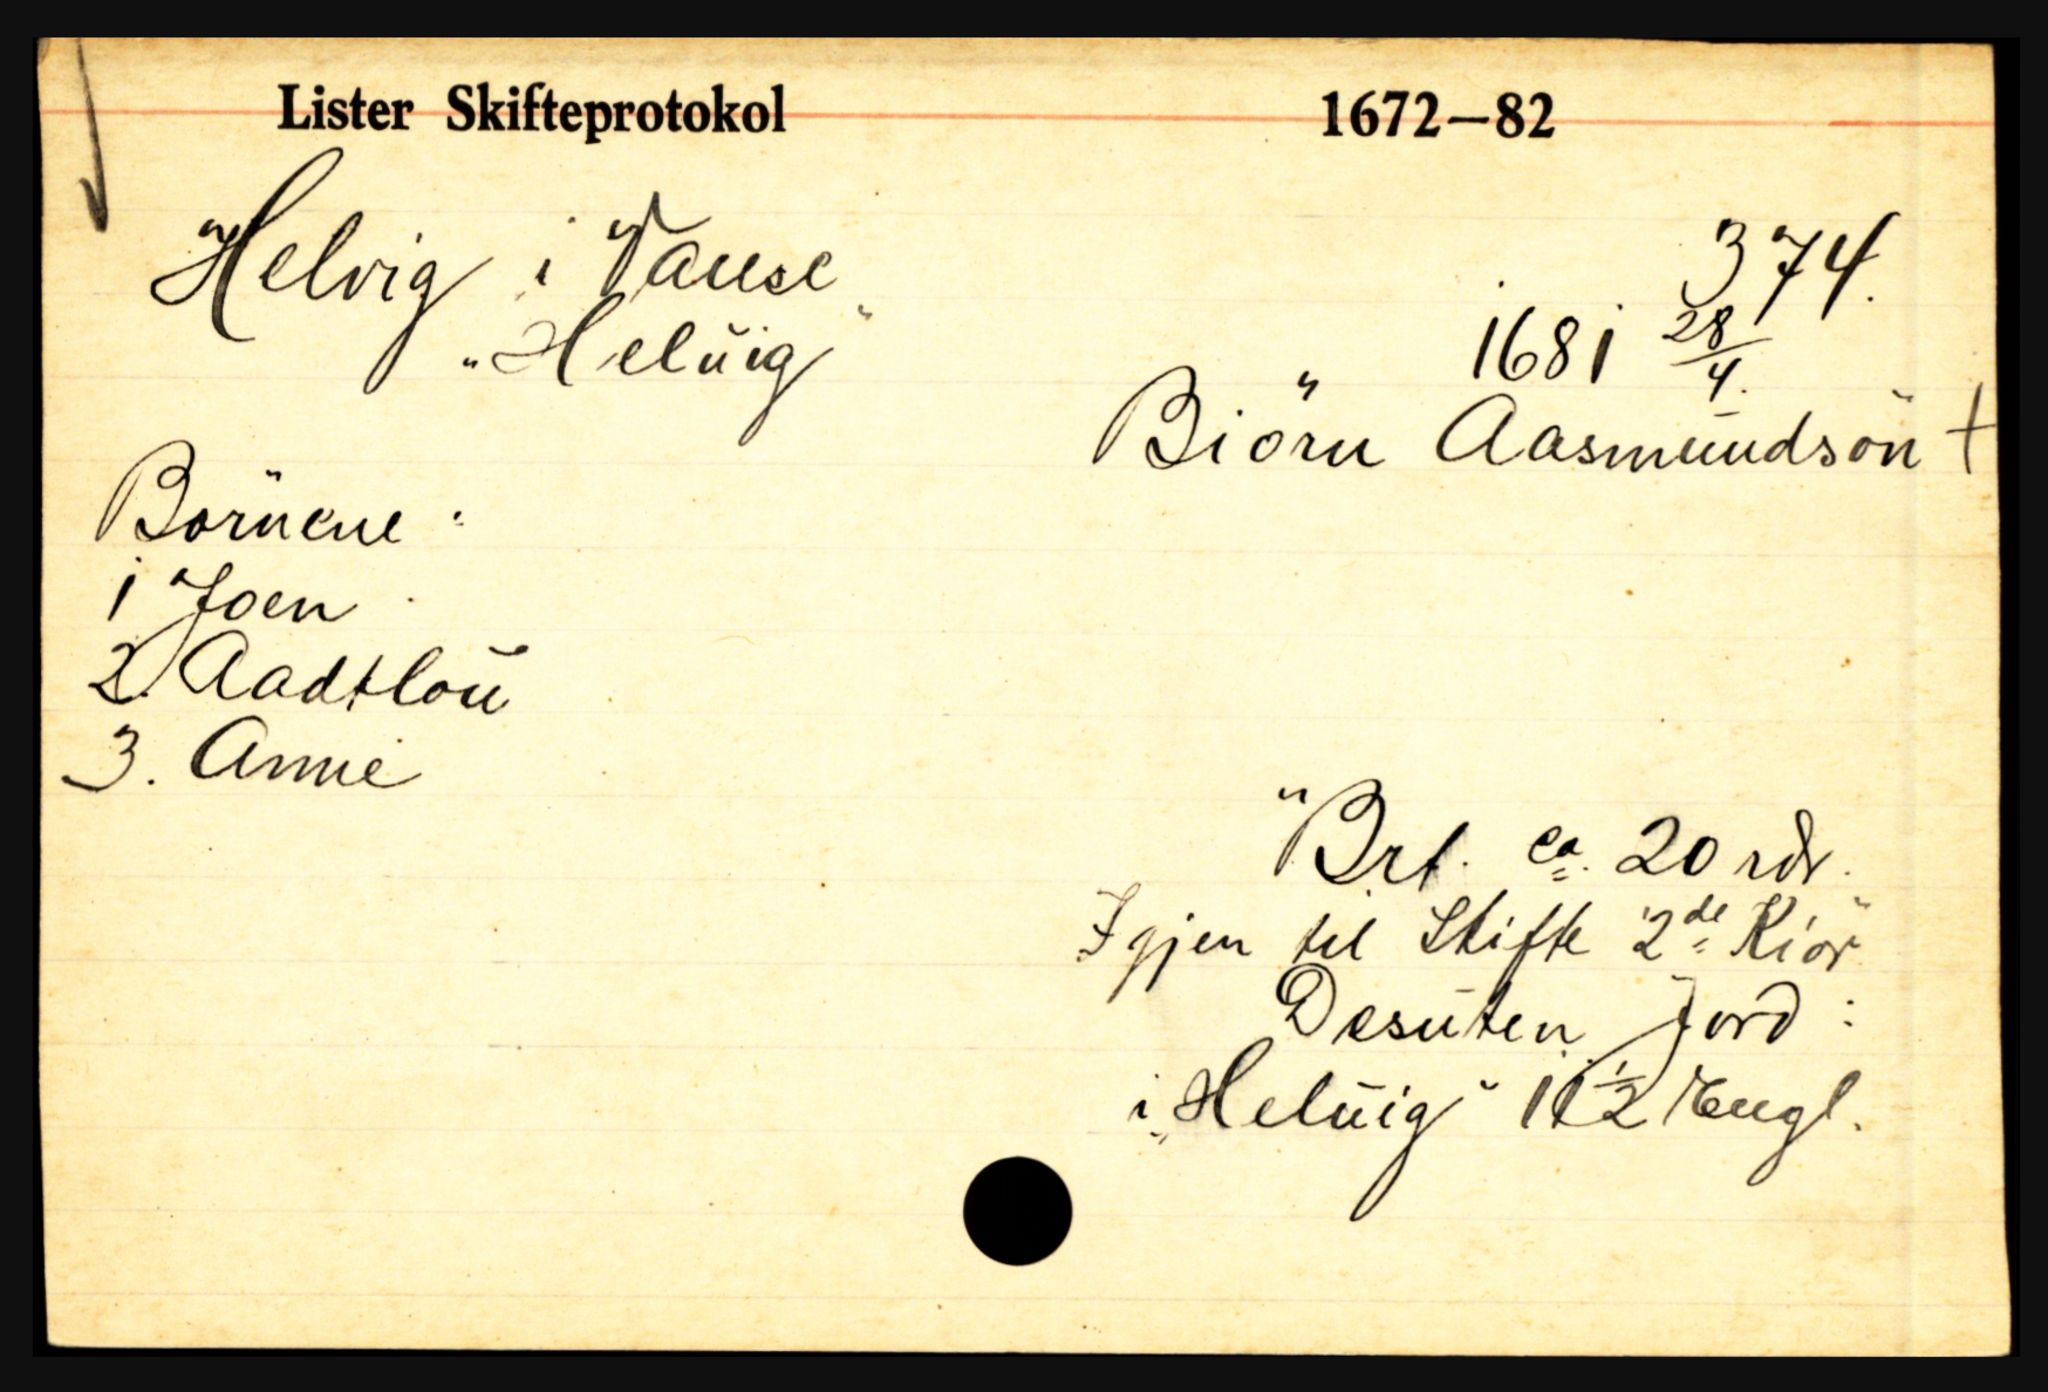 Lister Skifteprotokol 1672—82
Helvig i Vanse 374.
„Helŭig" 1681 28/4.
Biörn Aasmŭndsön +
Börnene:
1 Joen
2. Aadtloŭ
3. Anne
Brt. ca. 20 rdr.
Igjen til Skifte 2de Kiör
Desŭten Jord:
i „Helŭig" 1 1½ Engl.